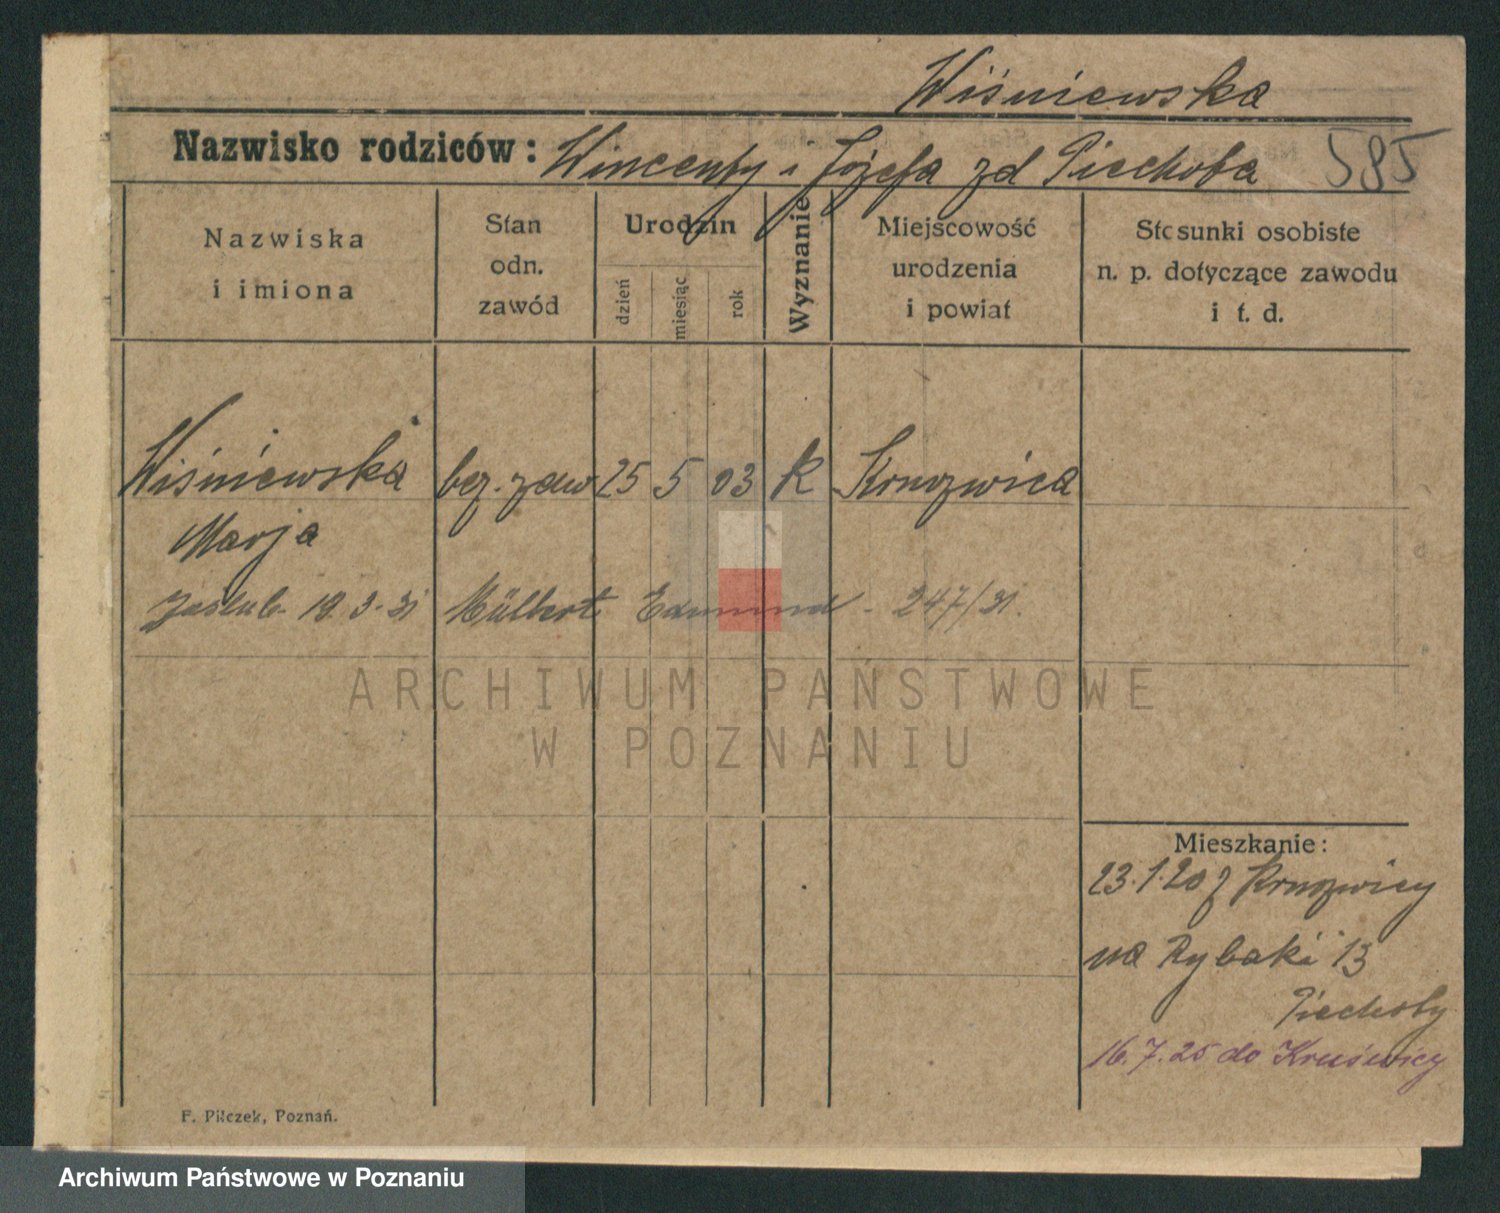 Wiśniewska
Nazwisko rodziców: Wincenty i Józefa zd Piechota 585
Nazwiska
i imiona
Stan
odn.
zawód
Urodzin
dzień
miesiąc
rok
Wyznanie
Miejscowość
urodzenia
i powiat
Stosunki osobiste
n. p. dotyczące zawodu
i t. d.
Wiśniewska bez. zaw 25 5 03 k
Marja
zaślub. 19.3.31 Mülbert Edmund - 247/31.
ARCHIWUM PAŃSTWOWE
W POZNANIU
Mieszkanie:
23.1.20 z
na Rybaki 13
Piechoty
16.7.25 do Kruświcy
F. Pilczek, Poznań.
Archiwum Państwowe w Poznaniu